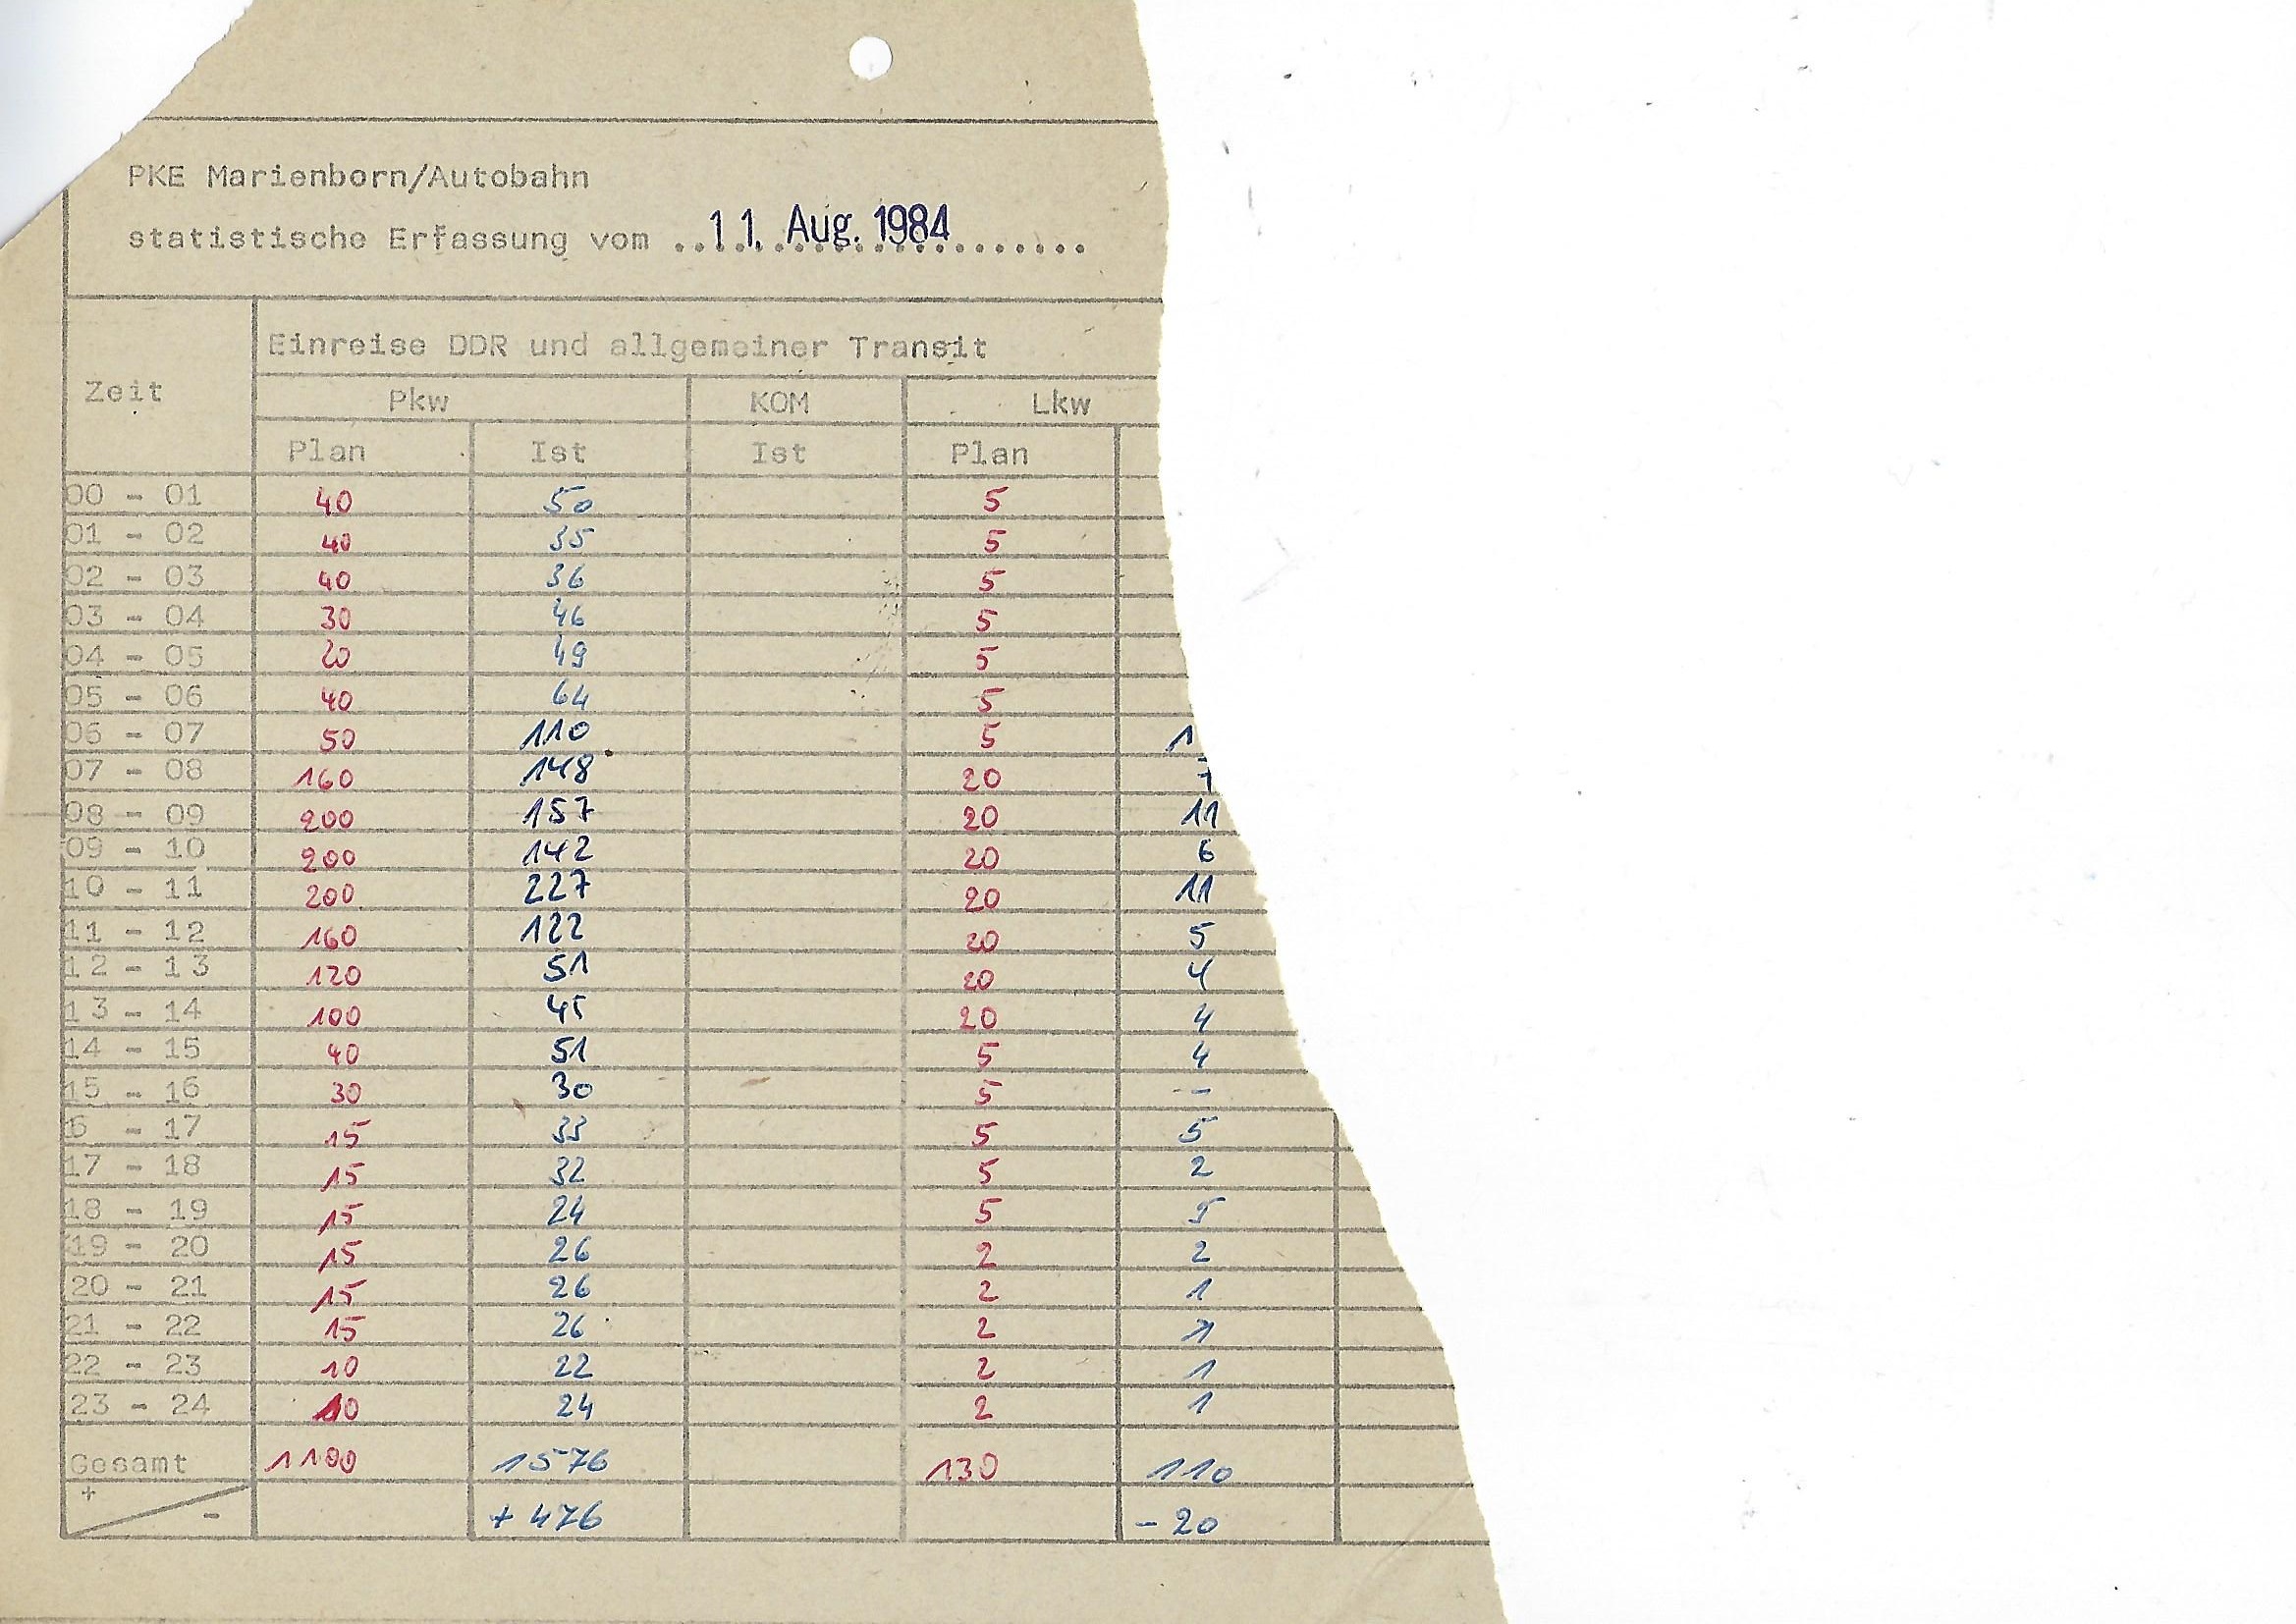 PKE Marienborn/Autobahn
statistische Erfassung vom ..11. Aug. 1984........
Zeit
Einreise DDR und allgemeiner Transit
Pkw KOM Lkw
Plan Ist Ist Plan
00 - 01 40 50 5
01 - 02 40 35 5
02 - 03 40 36 5
03 - 04 30 46 5
04 - 05 20 49 5
05 - 06 40 64 5
06 - 07 50 110 5 1
07 - 08 160 148 20 7
08 - 09 200 157 20 11
09 - 10 200 142 20 6
10 - 11 200 227 20 11
11 - 12 160 122 20 5
12 - 13 120 51 20 4
13 - 14 100 45 20 4
14 - 15 40 51 5 4
15 - 16 30 30 5 --
6 - 17 15 33 5 5
17 - 18 15 32 5 2
18 - 19 15 24 5 5
19 - 20 15 26 2 2
20 - 21 15 26 2 1
21 - 22 15 26 2 1
22 - 23 10 22 2 1
23 - 24 10 24 2 1
Gesamt 1100 1576 130 110
+ - + 476 - 20